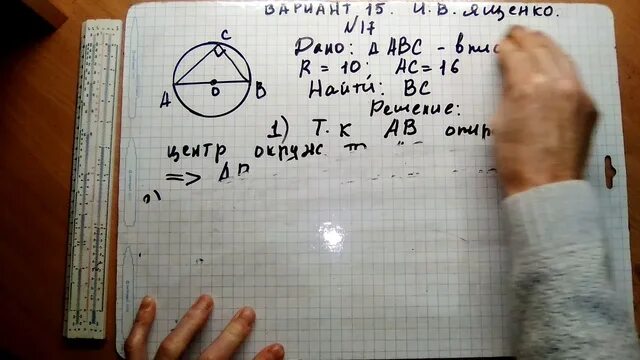 ВАРИАНТ 15. И. В. ЯЩЕНКО.
№17
Дано: Δ ABC - впис
R = 10; AC = 16
Найти: BC
Решение:
1) Т.к AB опир
центр окруж
=> Δ
C
A
O
B